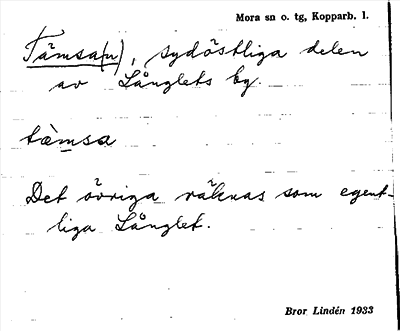 Mora sn o. tg, Kopparb. l.
Tämsa(n), sydöstliga delen
av Långlets by.
tæ̀msa
Det övriga räknas som egent-
liga Långlet.
Bror Lindén 1933